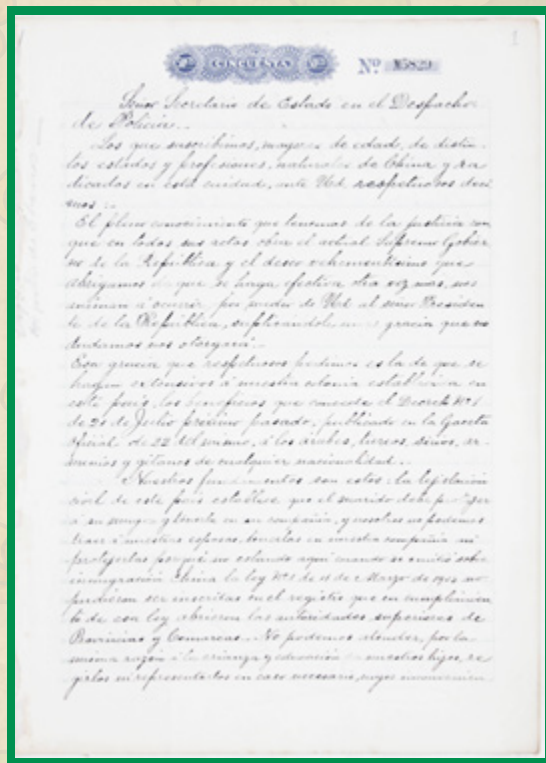 1
CINCUENTA Nº 15829
Señor Secretario de Estado en el Despacho
de Policía.
Los que suscribimos, mayores de edad, de distin-
tos estados y profesiones, naturales de China y ra-
dicados en esta ciudad, ante Ud. respetuosos deci
mos:
El pleno conocimiento que tenemos de la justicia con
que en todos sus actos obra el actual Supremo Gobier
no de la República y el deseo vehementísimo que
abrigamos de que se haga efectiva otra vez mas, nos
animan á ocurrir por medio de Ud. al señor Presiden
te de la República, suplicándole una gracia que no
dudamos nos otorgará.
Esa gracia que respetuosos pedimos es la de que se
hagan extensivos á nuestra colonia establecida en
este país, los beneficios que concede el Decreto Nº 1
de 20 de Julio próximo pasado, publicado en la Gaceta
Oficial de 22 del mismo, á los árabes, turcos, sirios, ar-
menios y gitanos de cualquier nacionalidad.
Nuestros fundamentos son estos: la legislación
civil de este país establece que el marido debe proteger
á su mujer y tenerla en su compañía, y nosotros no podemos
traer á nuestras esposas, tenerlas en nuestra compañía ni
protejerlas porque no estando aquí cuando se emitió sobre
inmigración China la ley Nº 6 de 11 de Marzo de 1904 no
pudieron ser inscritas en el registro que en cumplimien
to de esa ley abrieron las autoridades superiores de
Provincias y Comarcas. No podemos atender, por la
misma razón á la crianza y educación de nuestros hijos, re
girlos ni representarlos en caso necesario,